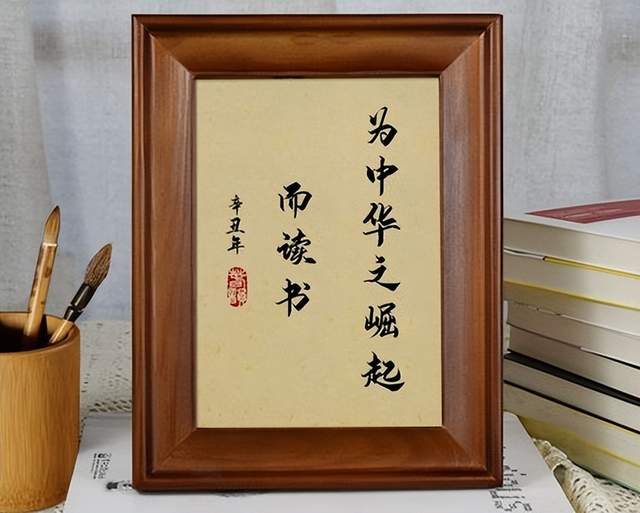 为中华之崛起
而读书
辛丑年